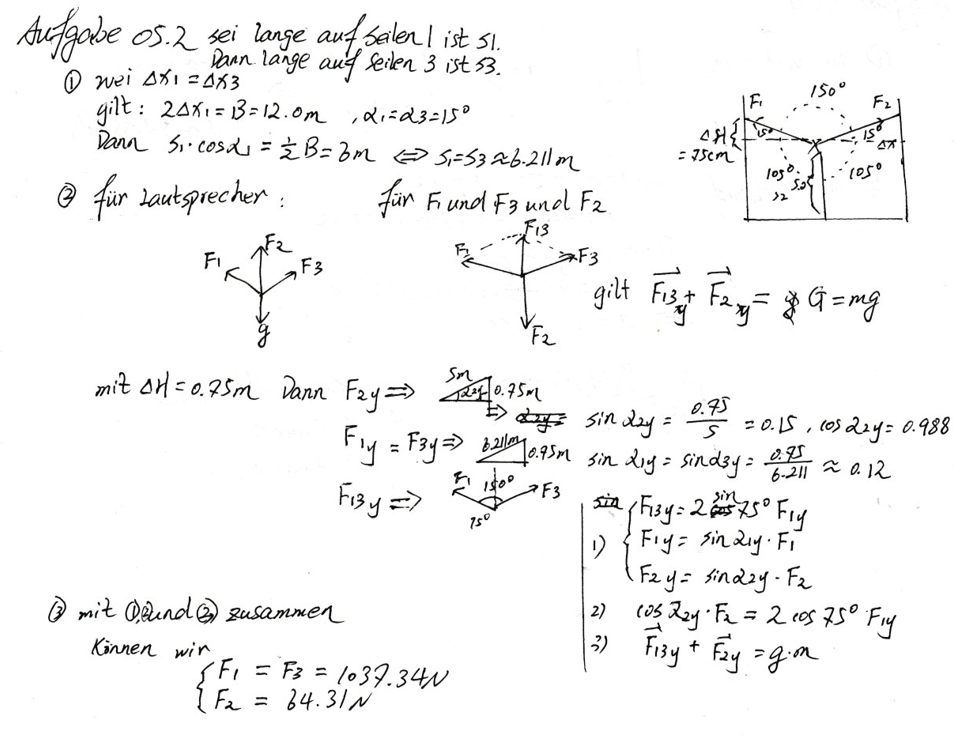 Aufgabe 05.2 sei lange auf seilen 1 ist S1.
Dann lange auf seilen 3 ist S3.
① wei Δx1 = Δx3
gilt: 2Δx1 = B = 12.0m , α1 = α3 = 15°
Dann S1 · cosα1 = ½ B = 6m ⟺ S1 = S3 ≈ 6.211m
F1 150° F2
ΔH = 75cm
15° 15° Δx
105° 105°
5.0
S2
② für Lautsprecher : für F1 und F3 und F2
F1 F2 F3
g
F1 F13 F3
F2
gilt F⃗13y + F⃗2y = G = mg
mit ΔH = 0.75m Dann F2y ⇒ 5m α2y 0.75m
⇒ sin α2y = 0.75/5 = 0.15 , cos α2y = 0.988
F1y = F3y ⇒ 6.211m 0.75m sin α1y = sin α3y = 0.75/6.211 ≈ 0.12
F13y ⇒ F1 150° F3
75°
1) F13y = 2 sin 75° F1y
F1y = sin α1y · F1
F2y = sin α2y · F2
2) cos α2y · F2 = 2 cos 75° F1y
3) F⃗13y + F⃗2y = g·m
③ mit ①, und ② zusammen
Können wir
F1 = F3 = 1037.34N
F2 = 64.31N